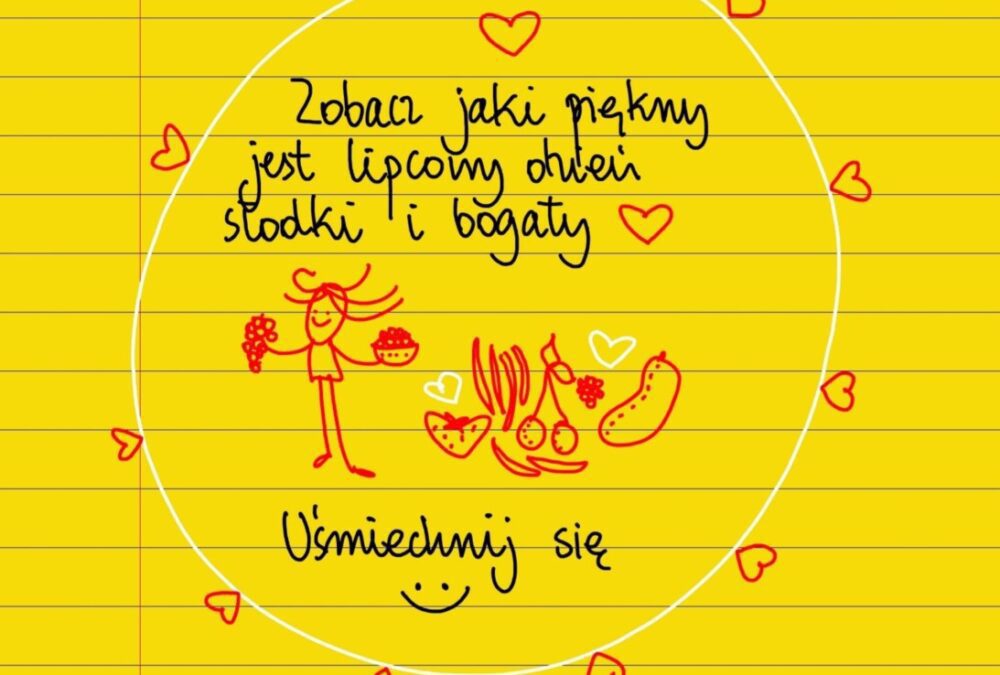 Zobacz jaki piękny
jest lipcowy dzień
słodki i bogaty
Uśmiechnij się